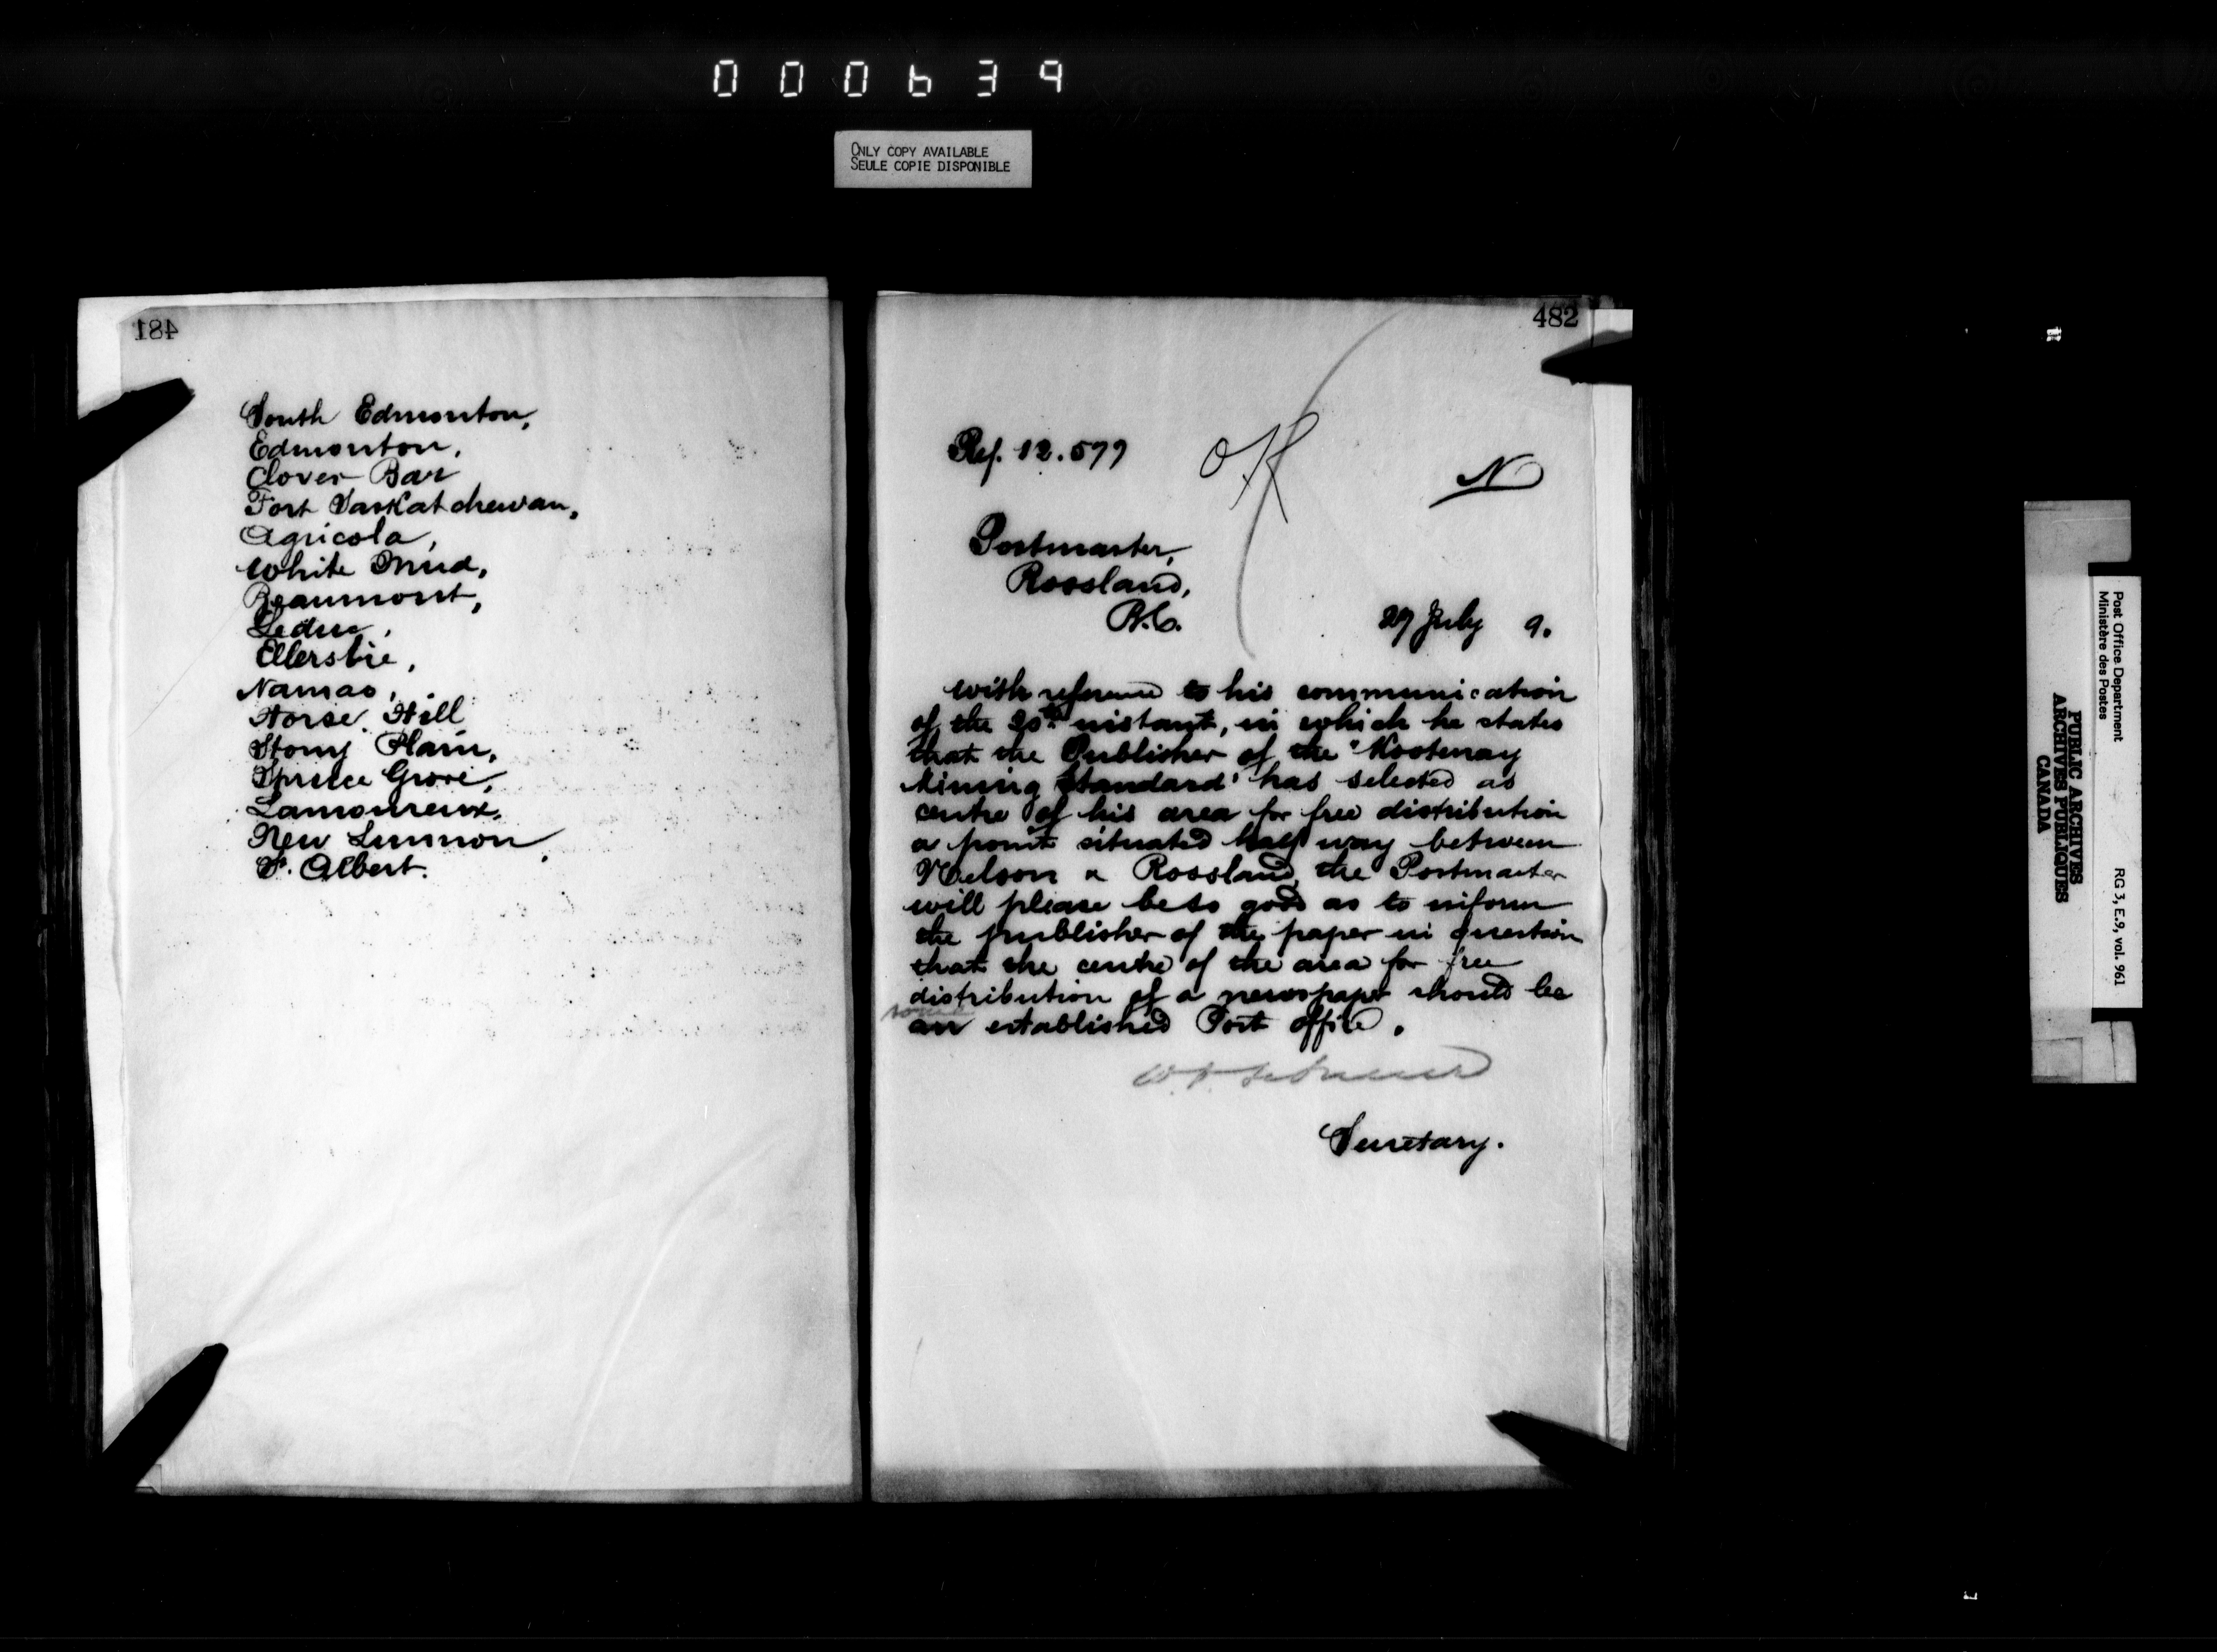 000639
ONLY COPY AVAILABLE
SEULE COPIE DISPONIBLE
481
South Edmonton,
Edmonton,
Clover Bar
Fort Saskatchewan,
Agricola,
White Mud,
Beaumont,
Leduc,
Ellerslie,
Namao,
Horse Hill
Stony Plain,
Spruce Grove,
Lamoureux,
New Lunnon,
St. Albert.
482
Ref. 12.577
OK
N
Postmaster,
Rossland,
B.C.
27 July 9.
With reference to his communication
of the 20th instant, in which he states
that the Publisher of the "Kootenay
Mining Standard" has selected as
centre of his area for free distribution
a point situated half way between
Nelson & Rossland, the Postmaster
will please be so good as to inform
the publisher of the paper in question
that the centre of the area for free
distribution of a newspaper should be
some
an established Post office.
Secretary.
Post Office Department
Ministère des Postes
RG 3, E.9, vol. 961
PUBLIC ARCHIVES
ARCHIVES PUBLIQUES
CANADA